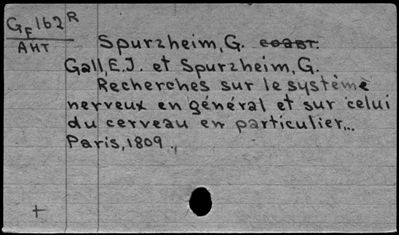 GF 162 R
AHT
Spurzheim, G. coaut.
Gall, E.J. et Spurzheim, G.
Recherches sur le système
nerveux en général et sur celui
du cerveau en particulier...
Paris, 1809.,
+